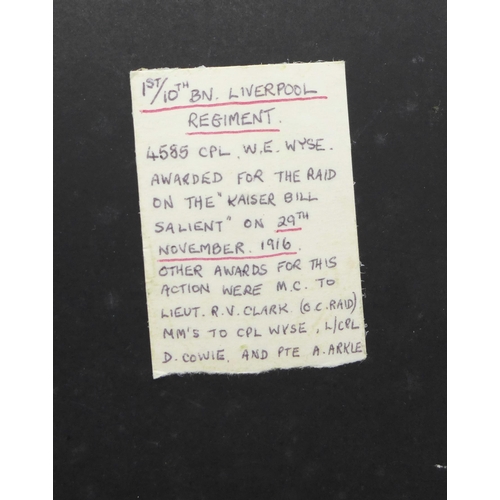 1ST/10TH BN. LIVERPOOL
REGIMENT.
4585 CPL. W.E. WYSE.
AWARDED FOR THE RAID
ON THE "KAISER BILL
SALIENT" ON 29TH
NOVEMBER. 1916.
OTHER AWARDS FOR THIS
ACTION WERE M.C. TO
LIEUT. R.V. CLARK (O.C. RAID)
MM'S TO CPL WYSE, L/CPL
D. COWIE, AND PTE A. ARKLE